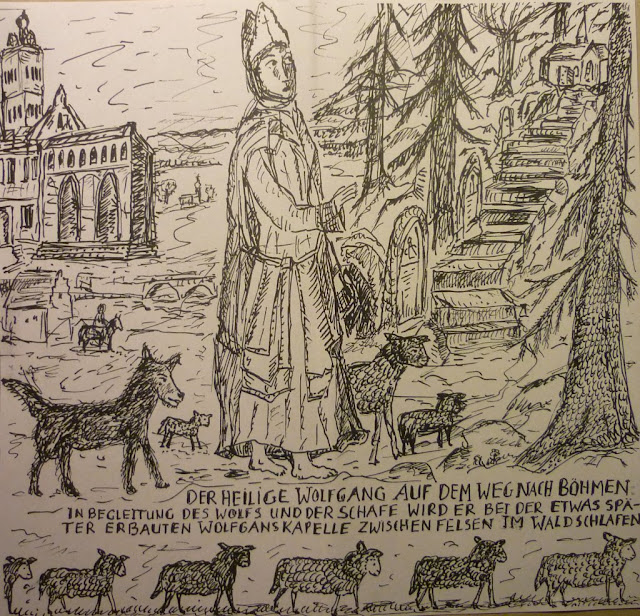 DER HEILIGE WOLFGANG AUF DEM WEG NACH BÖHMEN
IN BEGLEITUNG DES WOLFS UND DER SCHAFE WIRD ER BEI DER ETWAS SPÄ-
TER ERBAUTEN WOLFGANSKAPELLE ZWISCHEN FELSEN IM WALD SCHLAFEN